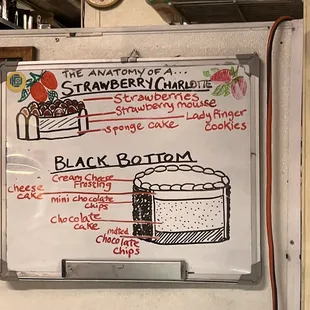 THE ANATOMY OF A...
STRAWBERRY CHARLOTTE
Strawberries
Strawberry mousse
Lady Finger
cookies
sponge cake
BLACK BOTTOM
Cream Cheese
Frosting
cheese
cake
mini chocolate
chips
chocolate
cake
melted
Chocolate
chips